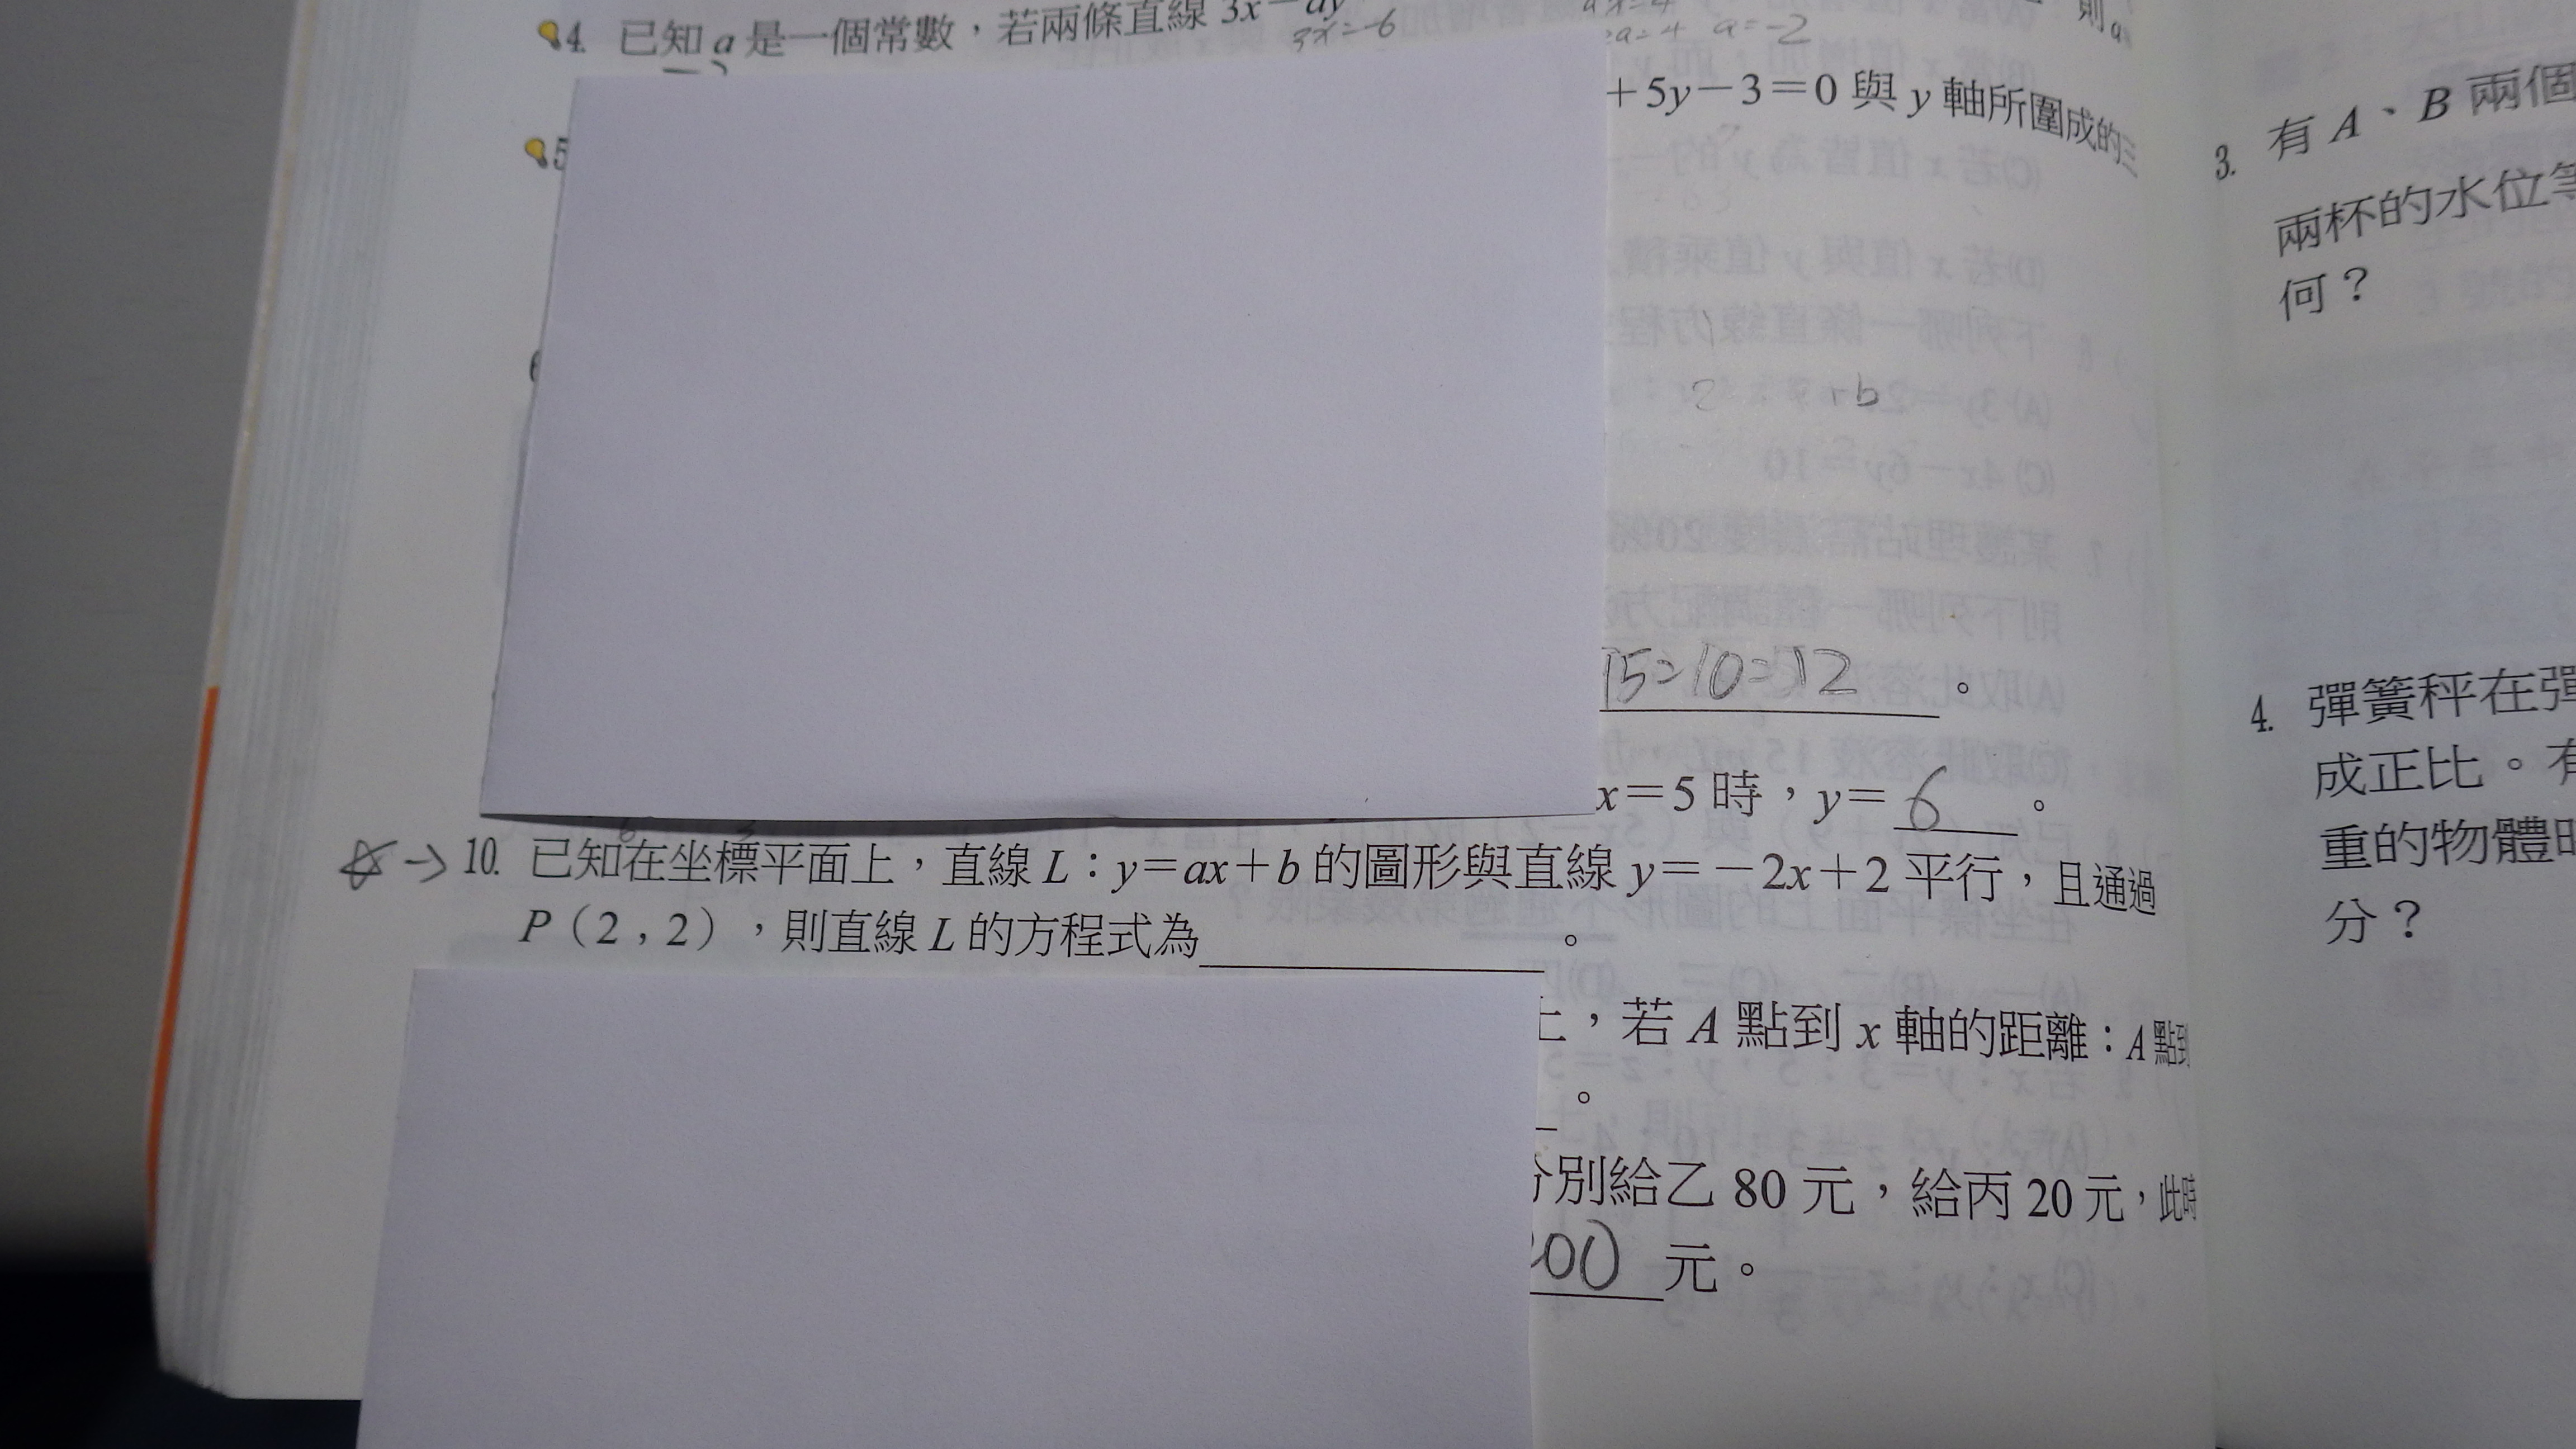 4. 已知 a 是一個常數，若兩條直線 3x－ay
3x=-6
a=4 a=-2
則 a
5
＋5y－3＝0 與 y 軸所圍成的三
2 +b
15=10=12 。
x＝5 時，y＝ 6 。
☆→ 10. 已知在坐標平面上，直線 L：y＝ax＋b 的圖形與直線 y＝－2x＋2 平行，且通過
P（2 , 2），則直線 L 的方程式為 。
上，若 A 點到 x 軸的距離：A 點到
。
分別給乙 80 元，給丙 20 元，此時
00 元。
3. 有 A、B 兩個
兩杯的水位等
何？
4. 彈簧秤在彈
成正比。有
重的物體時
分？